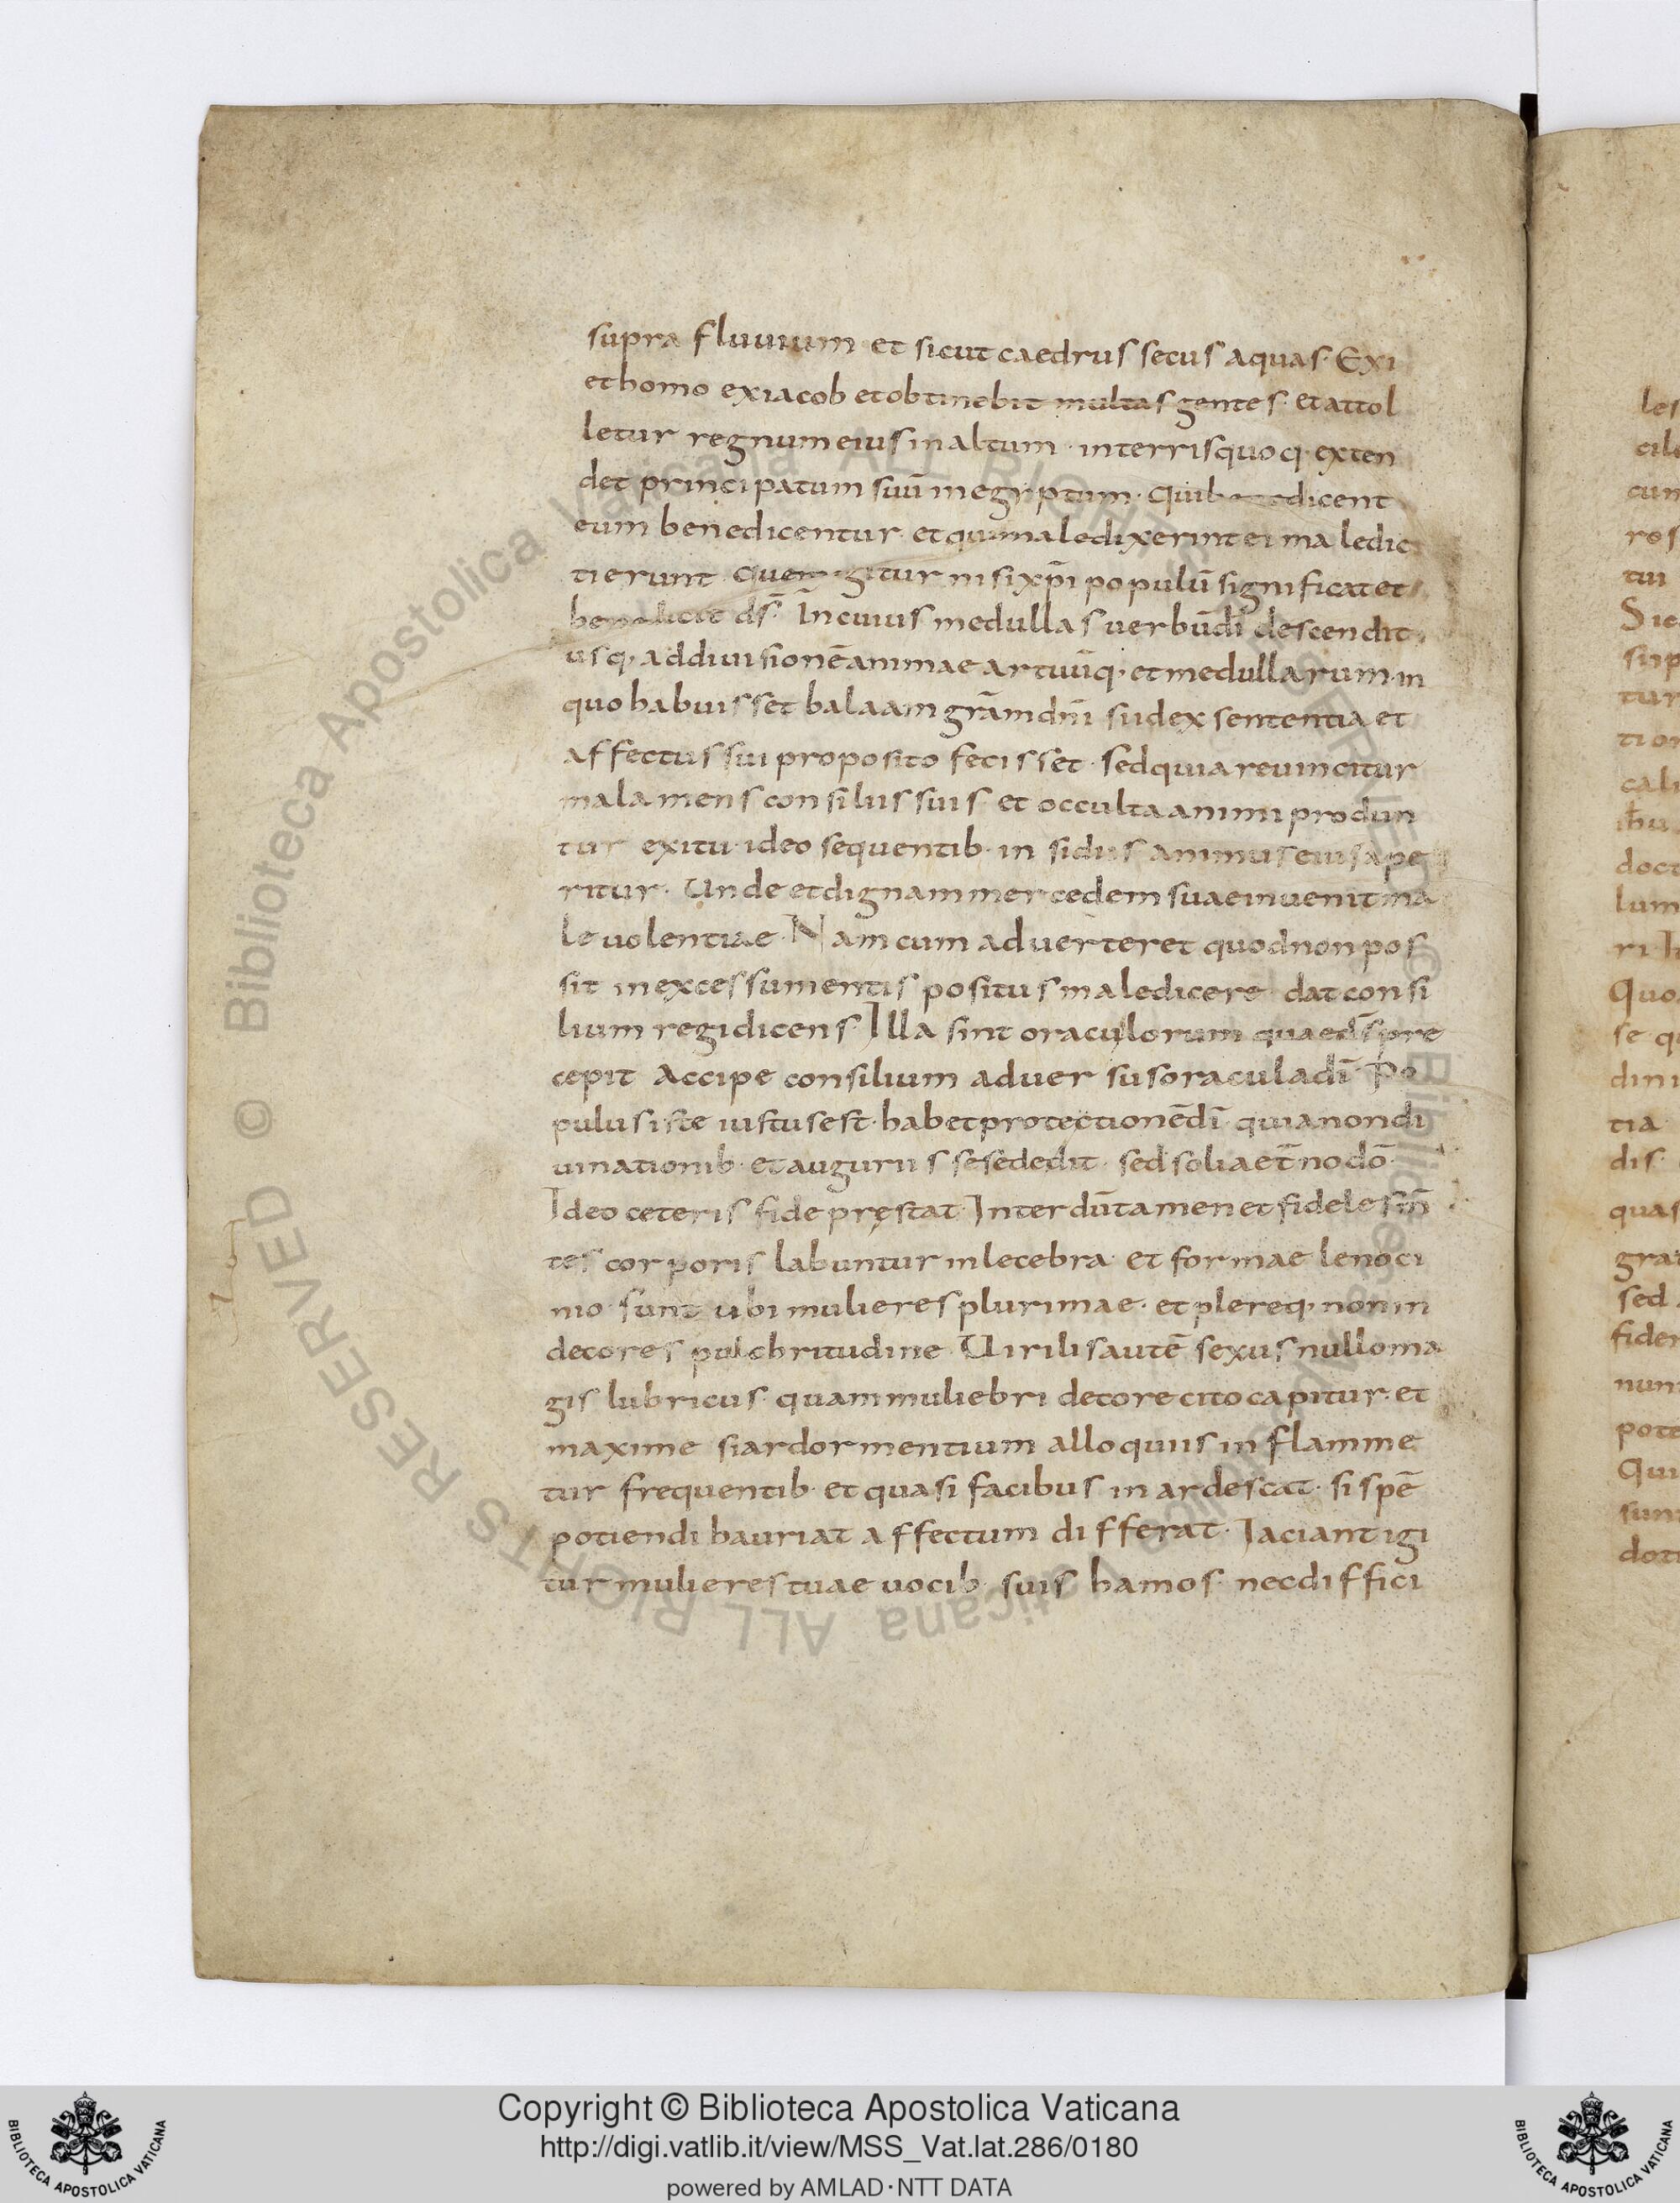 supra fluuium et sicut caedrus secus aquas. Exi
et homo ex iacob et obtinebit multas gentes. et attol
letur regnum eius in altum. in terris quoq. exten
det principatum suū in egyptum. Qui benedicent
eum benedicentur. et qui maledixerint ei maledic
ti erunt. Quem igitur nisi xp̄i populū significat et
benedicit ds̄. In cuius medullas uerbū dī descendit
usq. ad diuisionē animae artuūq. et medullarum. in
quo habuisset balaam grām dn̄i si id ex sententia et
affectus sui proposito fecisset. sed quia reuincitur
mala mens consiliis suis et occulta animi produn
tur exitu. ideo sequentib. insidiis animus eius ape
ritur. Unde et dignam mercedem suae inuenit ma
leuolentiae. Nam cum aduerteret quod non pos
sit in excessu mentis positus maledicere dat consi
lium regi dicens. Illa sint oraculorum quae ds̄ pre
cepit Accipe consilium aduersus oracula dī. Po
pulus iste iustus est. habet protectionē dī. quia non di
uinationib. et auguriis sese dedit. sed soli aet̄no dō.
Ideo ceteris fide prestat. Interdū tamen et fideles m̄
tes corporis labuntur inlecebra et formae lenoci
nio. sunt ubi mulieres plurimae. et plereq. non in
decores pulchritudine Uirilis autē sexus nullo ma
gis lubricus quam muliebri decore cito capitur. et
maxime si ardor mentium alloquiis inflamme
tur frequentib. et quasi facibus inardescat. si spē
potiendi hauriat affectum differat. Iaciant igi
tur mulieres tuae uocib. suis hamos. nec diffici
Copyright © Biblioteca Apostolica Vaticana
http://digi.vatlib.it/view/MSS_Vat.lat.286/0180
powered by AMLAD·NTT DATA